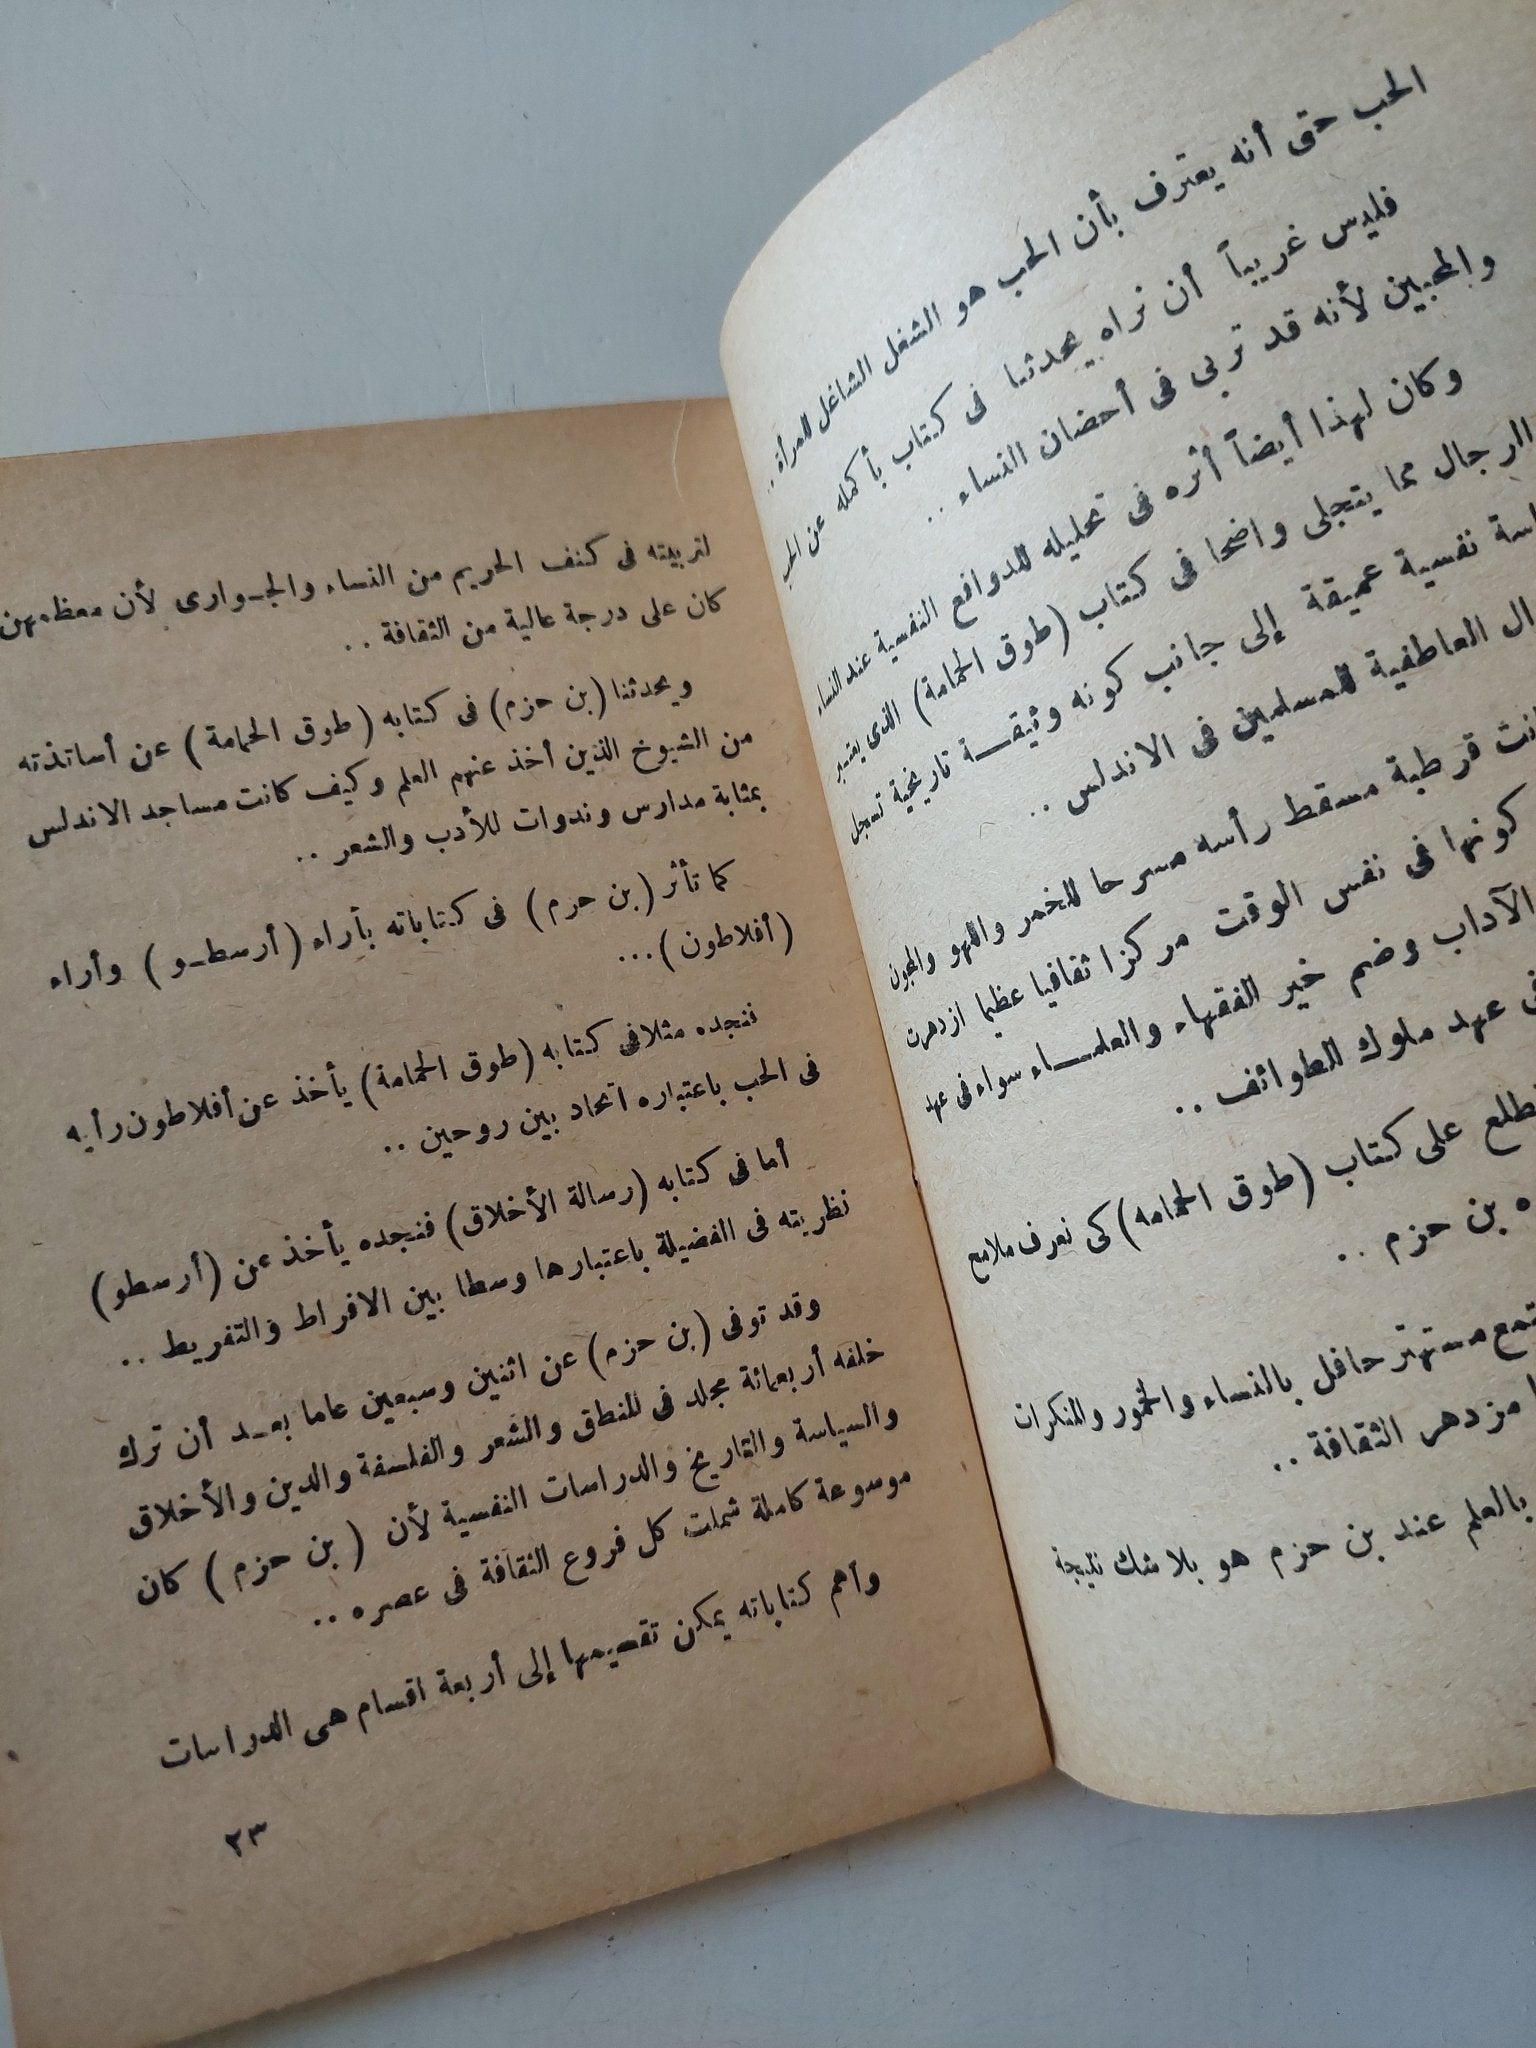 الحب حتى أنه يعترف بأن الحب هو الشغل الشاغل للمرأة ..
فليس غريباً أن نراه يحدثنا فى كتاب بأكمله عن الحب
والمحبين لأنه قد تربى فى أحضان النساء ..
وكان لهذا أيضاً أثره فى تحليله للدوافع النفسية عند النساء
الرجال مما يتجلى واضحا فى كتاب (طوق الحمامة) الذى يعتبر
نفسية عميقة إلى جانب كونه وثيقة تاريخية تسجل
العاطفية للمسلمين فى الاندلس ..
قرطبة مسقط رأسه مسرحا للخمر واللهو والمجون
كونها فى نفس الوقت مركزا ثقافيا عظيما ازدهرت
الآداب وضم خير الفقهاء والعلماء سواء فى عهد
عهد ملوك الطوائف ..
على كتاب (طوق الحمامه) كى نعرف ملامح
بن حزم ..
مستهتر حافل بالنساء والخمور والمنكرات
مزدهر الثقافة ..
بالعلم عند بن حزم هو بلا شك نتيجة
لتربيته فى كنف الحريم من النساء والجوارى لأن معظمهن
كان على درجة عالية من الثقافة ..
ويحدثنا (بن حزم) فى كتابه (طوق الحمامة) عن أساتذته
من الشيوخ الذين أخذ عنهم العلم وكيف كانت مساجد الاندلس
بمثابة مدارس وندوات للأدب والشعر ..
كما تأثر (بن حرم) فى كتاباته بأراء (أرسطو) وأراء
(أفلاطون) ...
فنجده مثلا فى كتابه (طوق الحمامة) يأخذ عن أفلاطون رأيه
فى الحب باعتباره اتحاد بين روحين ..
أما فى كتابه (رسالة الأخلاق) فنجده يأخذ عن (أرسطو)
نظريته فى الفضيلة باعتبارها وسطا بين الافراط والتفريط ..
وقد توفى (بن حزم) عن اثنين وسبعين عاما بعد أن ترك
خلفه أربعمائة مجلد فى المنطق والشعر والفلسفة والدين والأخلاق
والسياسة والتاريخ والدراسات النفسية لأن (بن حزم) كان
موسوعة كاملة شملت كل فروع الثقافة فى عصره ..
وأهم كتاباته يمكن تقسيمها إلى أربعة اقسام هى الدراسات
٢٣